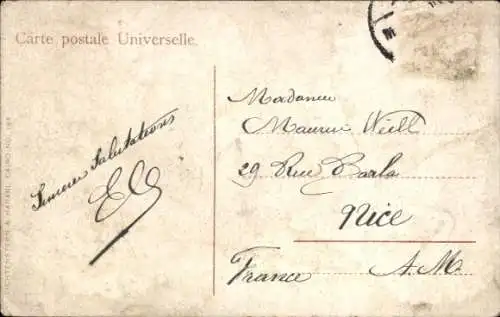 Carte postale Universelle.
Sincères Salutations
Madame
Maurice Weill
29 Rue
Nice
France A.M.
LICHTENSTERN & HARARI, CAIRO. NO.